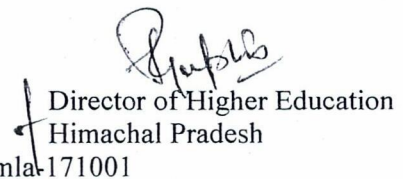 Director of Higher Education
Himachal Pradesh
mla-171001